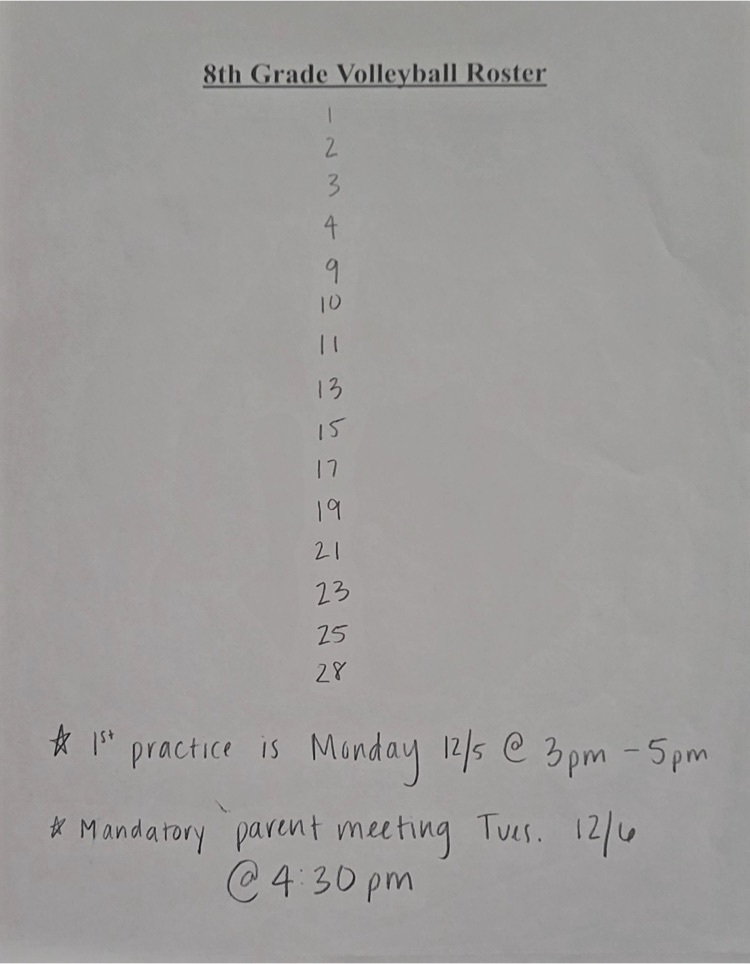 8th Grade Volleyball Roster
1
2
3
4
9
10
11
13
15
17
19
21
23
25
28
☆ 1st practice is Monday 12/5 @ 3pm - 5pm
☆ Mandatory parent meeting Tues. 12/6
@ 4:30 pm